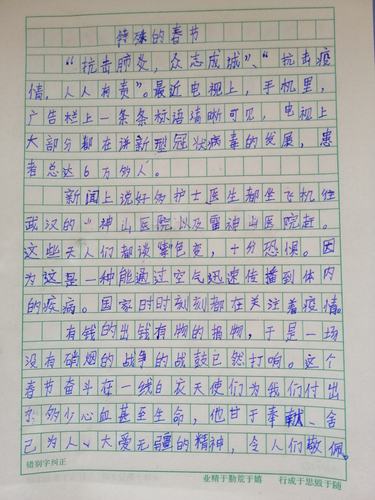 特殊的春节
“抗击肺炎,众志成城”、“抗击疫
情,人人有责”。最近电视上,手机里,
广告栏上一条条标语清晰可见,电视上
大部分都在讲新型冠状病毒的发展,患
者总达6万多人。
新闻上说好多护士医生都坐飞机往
武汉的“神山医院以及雷神山医院赶。
这些天人们都谈紫色变,十分恐惧。因
为这是一种能通过空气迅速传播到体内
的疾病。国家时时刻刻都在关注着疫情。
有钱的出钱有物的捐物,于是一场
没有硝烟的战争的战鼓已然打响。这个
春节奋斗在一线白衣天使们为我们付出
多少心血甚至生命,他甘于奉献、舍
己为人、大爱无疆的精神,令人们敬佩。
错别字纠正 业精于勤荒于嬉 行成于思毁于随